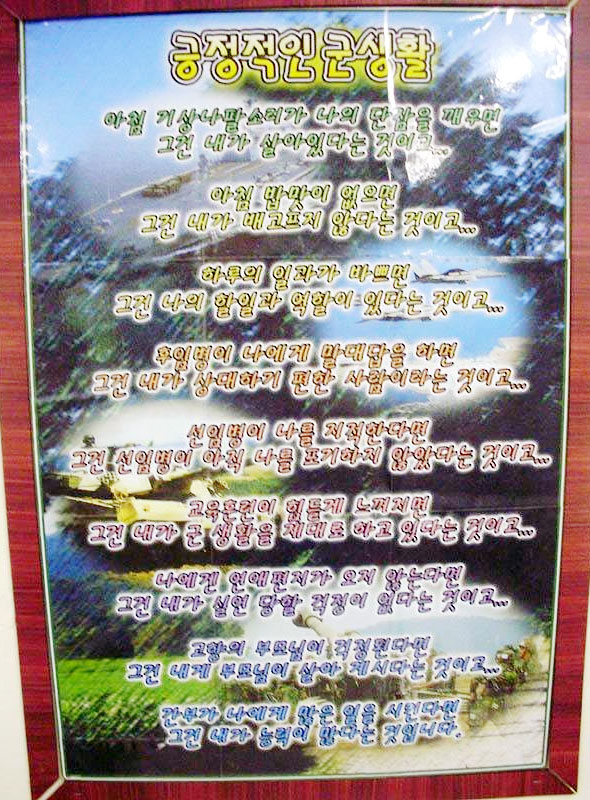 긍정적인 군생활
아침 기상나팔소리가 나의 단잠을 깨우면
그건 내가 살아있다는 것이고...
아침 밥맛이 없으면
그건 내가 배고프지 않다는 것이고...
하루의 일과가 바쁘면
그건 나의 할일과 역할이 있다는 것이고...
후임병이 나에게 말대답을 하면
그건 내가 상대하기 편한 사람이라는 것이고...
선임병이 나를 지적한다면
그건 선임병이 아직 나를 포기하지 않았다는 것이고...
교육훈련이 힘들게 느껴지면
그건 내가 군 생활을 제대로 하고 있다는 것이고...
나에겐 연애편지가 오지 않는다면
그건 내가 실연 당할 걱정이 없다는 것이고...
고향의 부모님이 걱정된다면
그건 내게 부모님이 살아 계시다는 것이고...
간부가 나에게 많은 일을 시킨다면
그건 내가 능력이 많다는 것입니다.